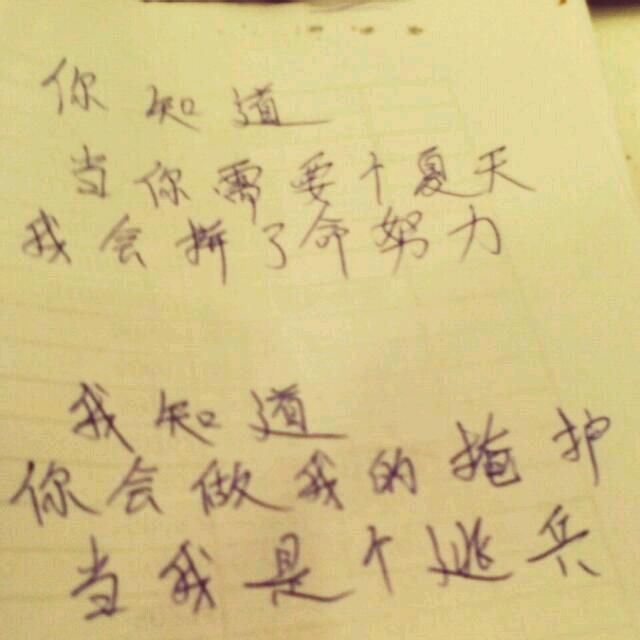 你知道
当你需要个夏天
我会拚了命努力
我知道
你会做我的掩护
当我是个逃兵